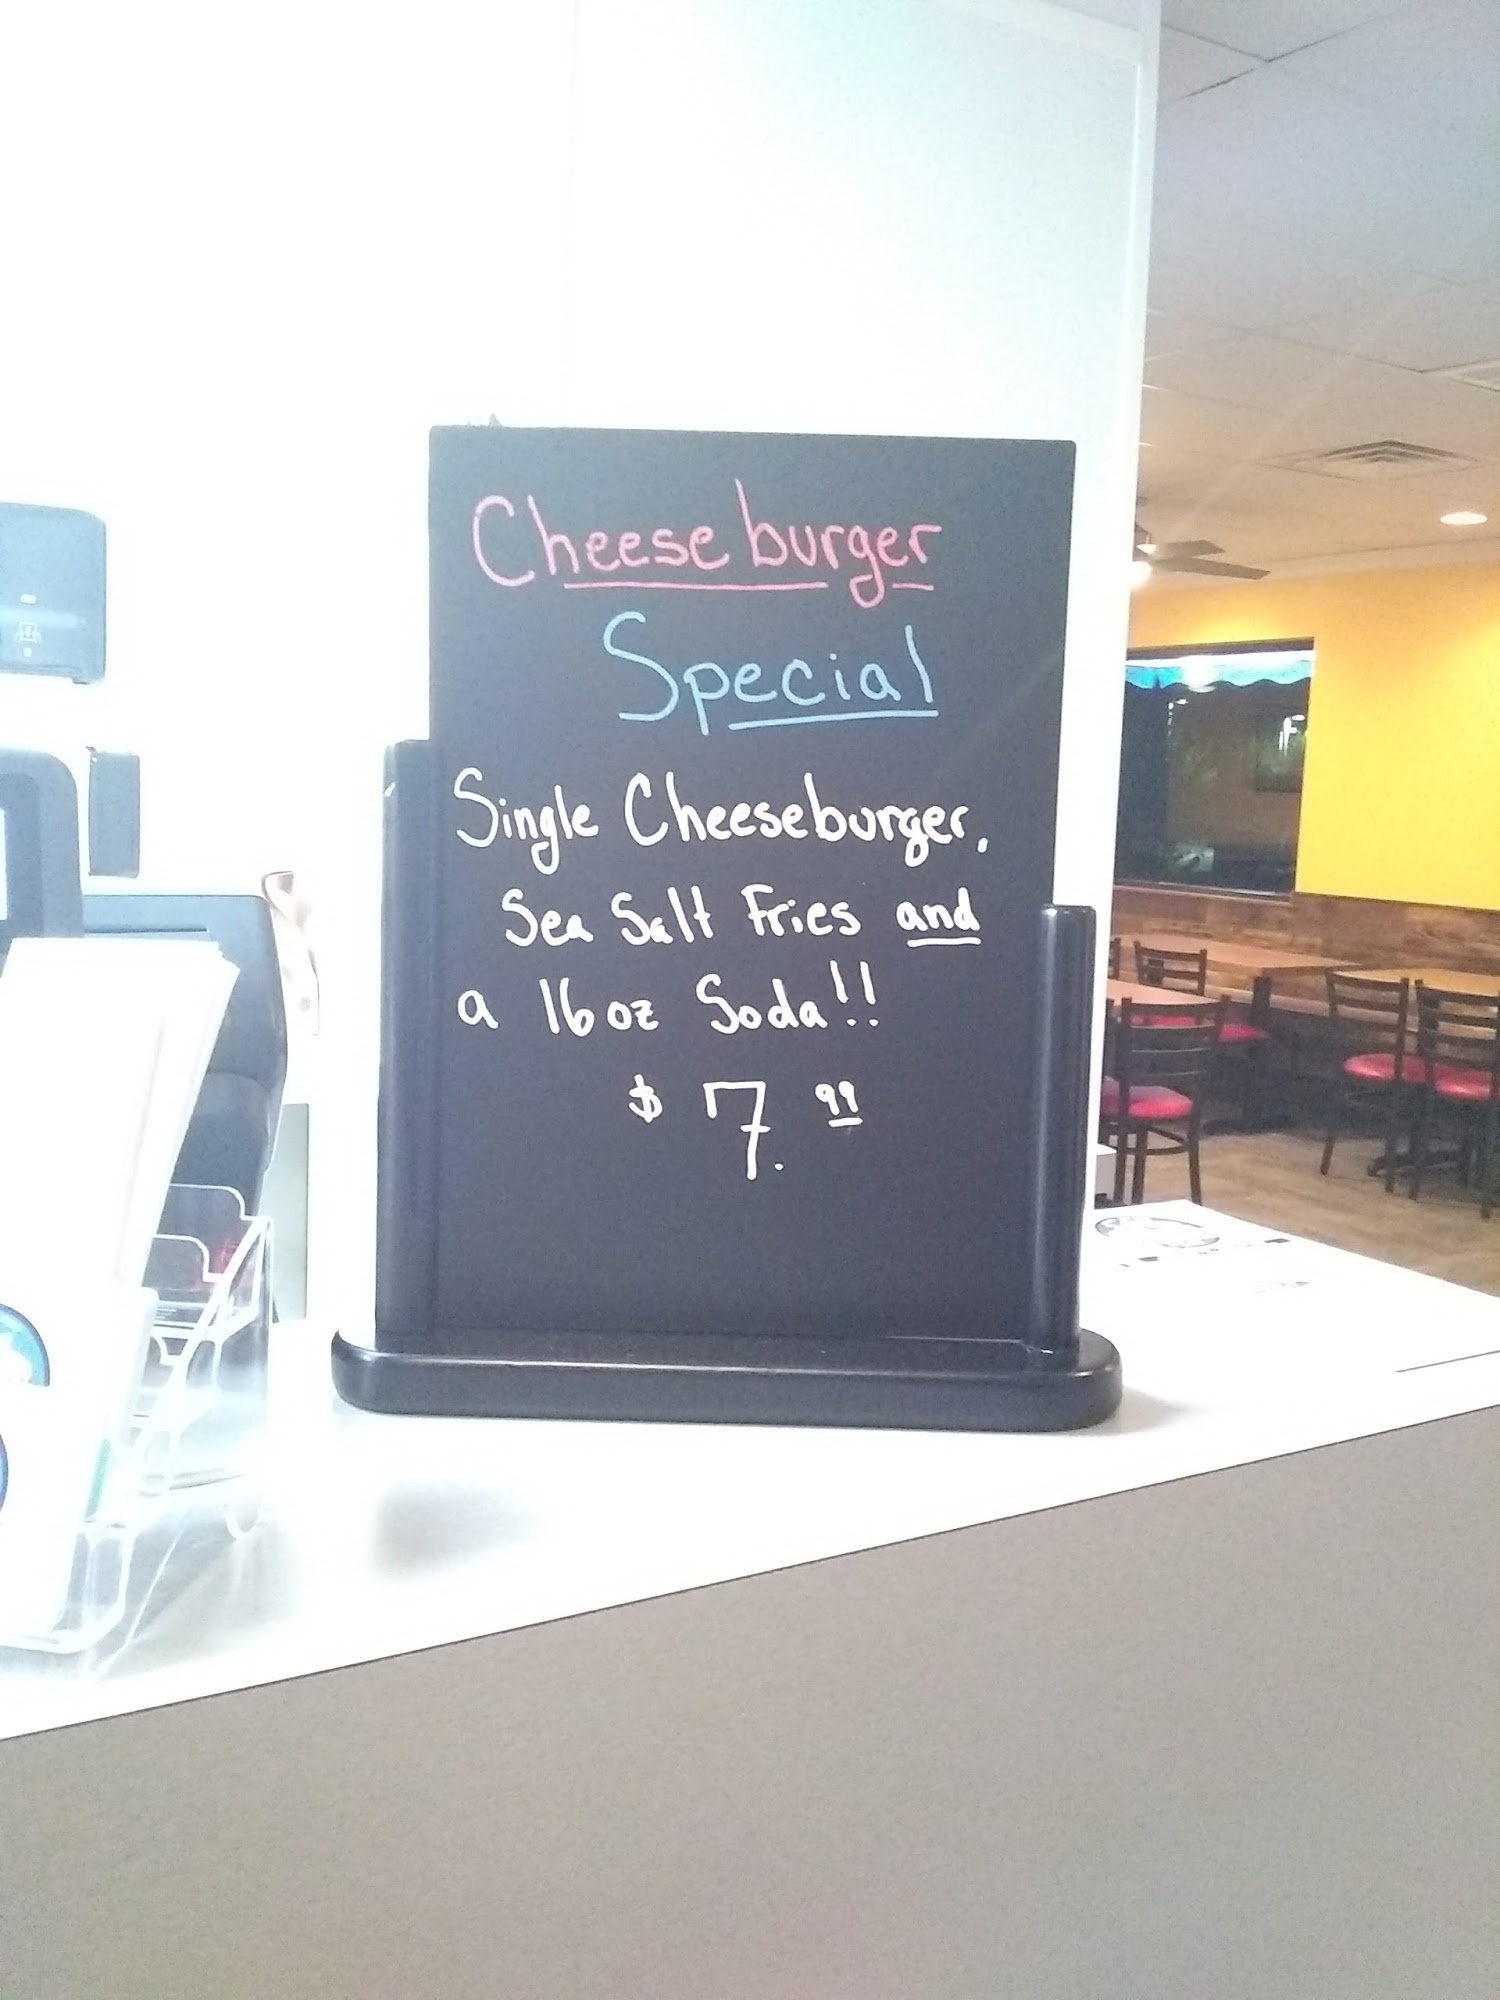 Cheeseburger
Special
Single Cheeseburger,
Sea Salt Fries and
a 16oz Soda!!
$ 7.99